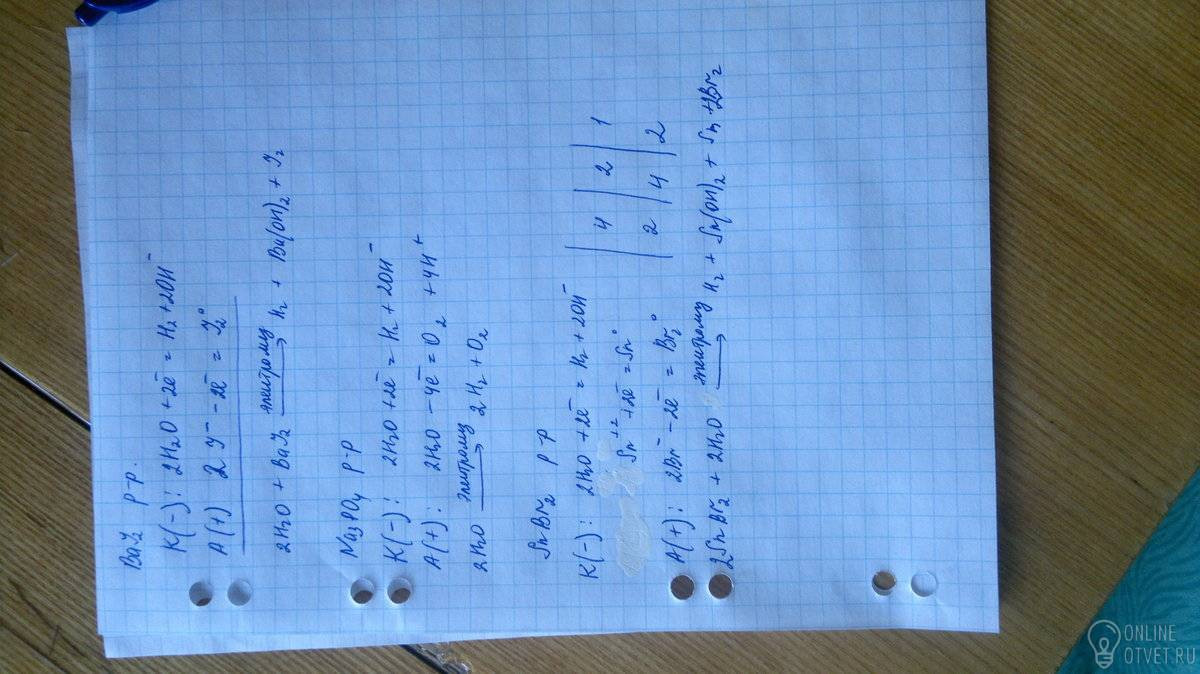 BaJ2 р-р.
K(-): 2H2O + 2ē = H2 + 2OH⁻
A(+) 2J⁻ - 2ē = J2⁰
2H2O + BaJ2 электролиз → H2 + Ba(OH)2 + J2
Na3PO4 р-р
K(-): 2H2O + 2ē = H2 + 2OH⁻
A(+): 2H2O - 4ē = O2 + 4H⁺
2H2O электролиз → 2H2 + O2
SnBr2 р-р
K(-): 2H2O + 2ē = H2 + 2OH⁻ | 4 | 2 | 1
Sn⁺² + 2ē = Sn⁰
A(+): 2Br⁻ - 2ē = Br2⁰ 2 | 4 | 2
2SnBr2 + 2H2O электролиз → H2 + Sn(OH)2 + Sn + 2Br2
ONLINE
OTVET.RU